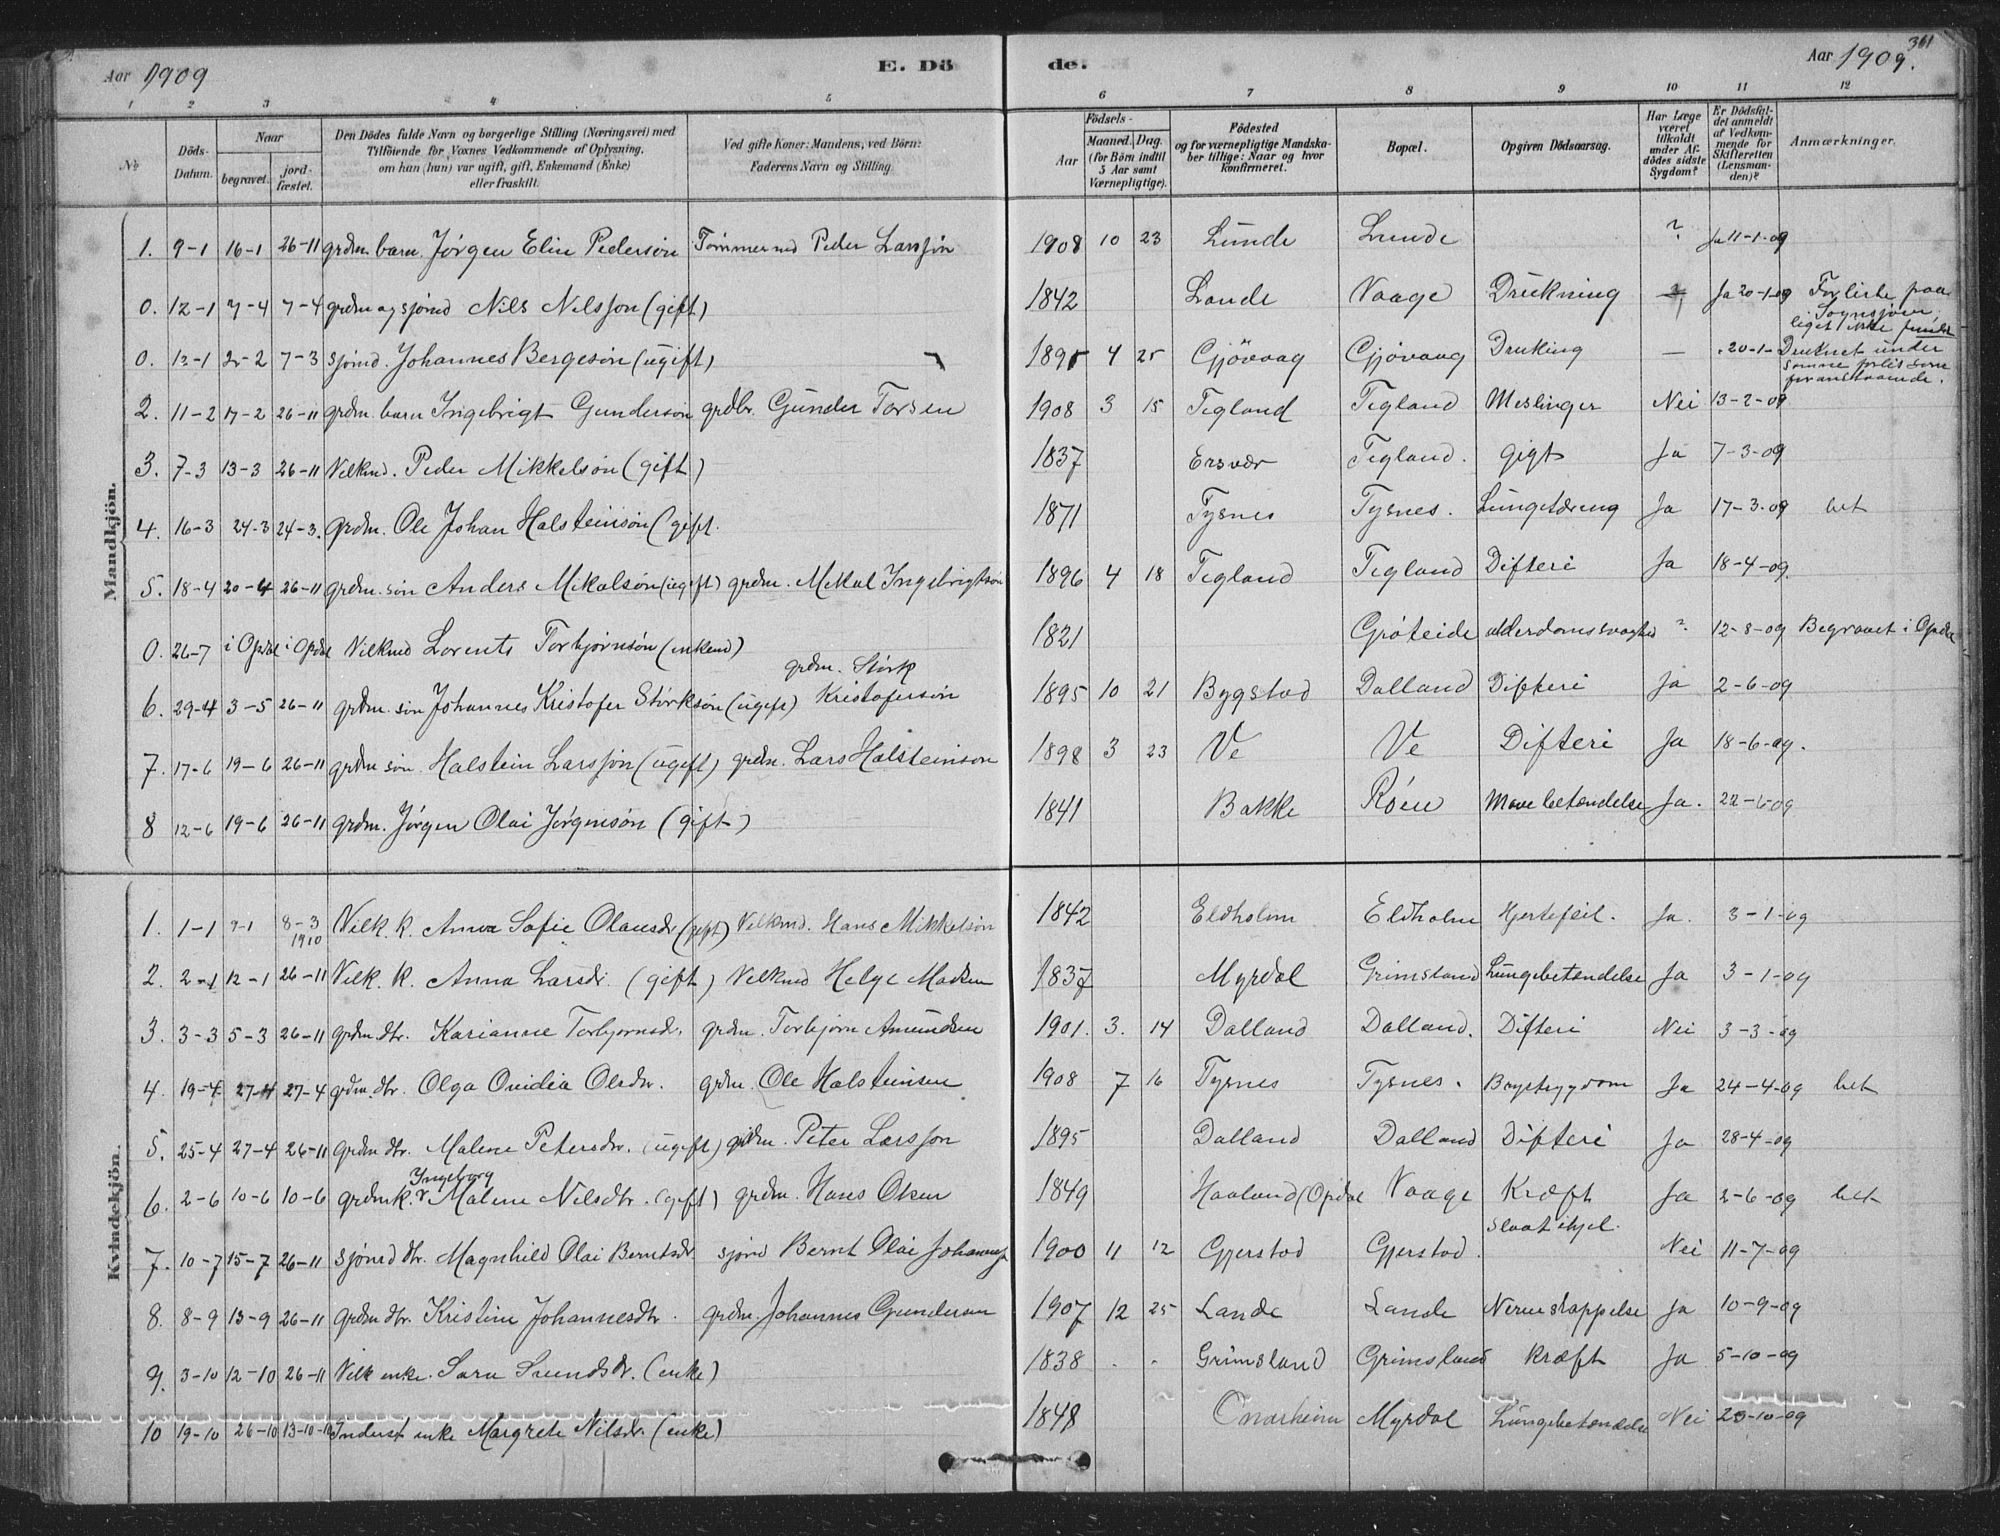 Aar 1909 E. Dö
1 2 3 4 5
№ Döds-Datum. Naar begravet. jord-fæstet. Den Dödes fulde Navn og borgerlige Stilling (Næringsvei) med Tilföiende for Voxnes Vedkommende af Oplysning, om han (hun) var ugift, gift, Enkemand (Enke) eller fraskilt. Ved gifte Koner: Mandens, ved Börn: Faderens Navn og Stilling.
Mandkjön.
1. 9-1 16-1 26-11 grdm. barn. Jørgen Elin Pedersøn Tømmermd Peder Larssøn
0. 12-1 7-4 7-4 grdm og sjømd Nils Nilssøn (gift)
0. 12-1 2-2 7-3 sjømd. Johannes Bergesøn (ugift)
2. 11-2 17-2 26-11 grdm. barn Ingebrigt Gundersøn grdbr. Gunder Torsen
3. 7-3 13-3 26-11 Vilkmd. Peder Mikkelsøn (gift)
4. 16-3 24-3 24-3. grdm. Ole Johan Halsteinsøn (gift.
5. 18-4 20-4 26-11 grdm. søn Anders Mikalsøn (ugift) grdm. Mikal Ingebrigtsøn
0. 26-7 i Opdal i Opdal Vilkmd Lorents Torbjørnsøn (enkemd)
6. 29-4 3-5 26-11 grdm. søn Johannes Kristofer Størksøn (ugift) grdm. Størk Kristofersøn
7. 17-6 19-6 26-11 grdm søn. Halstein Larssøn (ugift) grdm. Lars Halsteinson
8 12-6 19-6 26-11 grdm. Jørgen Olai Jørgensøn (gift)
Kvindekjön.
1. 1-1 9-1 8-3 1910 Vilk. k. Anna Sofie Olausdr (gift) Vilkmd. Hans Mikkelsøn
2. 2-1 12-1 26-11 Vilk. k. Anna Larsdr. (gift) Vilkmd Helge Madsen
3. 3-3 5-3 26-11 grdm. dtr. Karianne Torbjørnsdr. grdm. Torbjørn Amundsen
4. 19-4 27-4 27-4 grdm. dtr. Olga Ovidia Olsdr. grdm. Ole Halsteinsen
5. 25-4 27-4 26-11 grdm dtr. Malene Petersdr. (ugift) grdm. Peter Larsson
6. 2-6 10-6 10-6 grdmk. Ingeborg Malene Nilsdtr. (gift) grdm. Hans Olsen
7. 10-7 15-7 26-11 sjømd dtr. Magnhild Olai Berntsdr. sjømd Bernt Olai Johannes
8. 8-9 13-9 26-11 grdm dtr. Kristine Johannesdtr. grdm. Johannes Gundersen
9. 3-10 12-10 26-11 Vilk enke. Sara Svendsdr. (enke)
10 19-10 26-10 13-10-10 Inderst enke Margrete Nilsdr. (enke)
de. Aar 1909. 361
6 7 8 9 10 11 12
Födsels- Aar Maaned. Dag. (for Börn indtil 5 Aar samt Værnepligtige). Födested og for værnepligtige Mandskaber tillige: Naar og hvor konfirmeret. Bopæl. Opgiven Dödsaarsag. Har Læge været tilkaldt under Afdödes sidste Sygdom? Er Dödsfaldet anmeldt af Vedkommende for Skifteretten (Lensmanden)? Anmærkninger.
1908 10 23 Lunde Lunde ? Ja 11-1-09
1842 Lande Vaage Drukning ? Ja 20-1-09 Forliste paa Sognsjøen, liget ikke fundet
1895 4 25 Gjøvaag Gjøvaag Drukning — 20-1- Druknet under samme forlis som foranstaaende.
1908 3 15 Tegland Tegland Meslinger Nei 13-2-09
1837 Ersvær Tegland. gigt Ja 7-3-09
1871 Tysnes Tysnes. Lungetæring Ja 17-3-09 bet
1896 4 18 Tegland Tegland Difteri Ja 18-4-09.
1821 Grøteide alderdomssvaghed ? 12-8-09 Begravet i Opdal
1895 10 21 Bygstad Dalland Difteri Ja 2-6-09
1898 3 23 Ve Ve Difteri Ja 18-6-09.
1841 Bakke Røen Mavebetændelse Ja. 22-6-09
1842 Eldholm Eldholm Hjertefeil. Ja. 3-1-09
1837 Myrdal Grimsland Lungebetændelse Ja 3-1-09
1901. 3. 14 Dalland Dalland. Difteri Nei 3-3-09
1908 7 16 Tysnes Tysnes. Brystsygdom Ja 24-4-09 bet
1895 Dalland Dalland Difteri Ja 28-4-09
1849 Haaland (Opdal Vaage Kræft Ja 2-6-09 bet
1900 11 12 Gjerstad Gjerstad. Slaat ihjel. Nei 11-7-09
1907 12 25 Lande Lande Nerveslappelse Ja 10-9-09
1838 . . Grimsland Grimsland Kræft Ja 5-10-09
1848 Onarheim Myrdal Lungebetændelse Nei 20-10-09